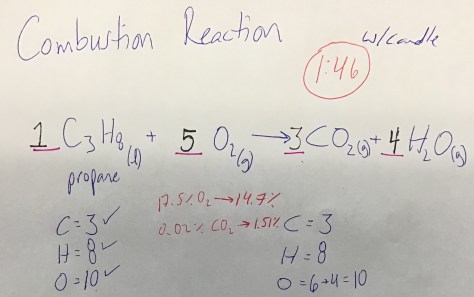 Combustion Reaction
w/candle
1:46
1 C3H8(l) + 5 O2(g) → 3 CO2(g) + 4 H2O(g)
propane
17.5% O2 → 14.7%
0.02% CO2 → 1.51%
C = 3 ✓
H = 8 ✓
O = 10 ✓
C = 3
H = 8
O = 6+4 = 10